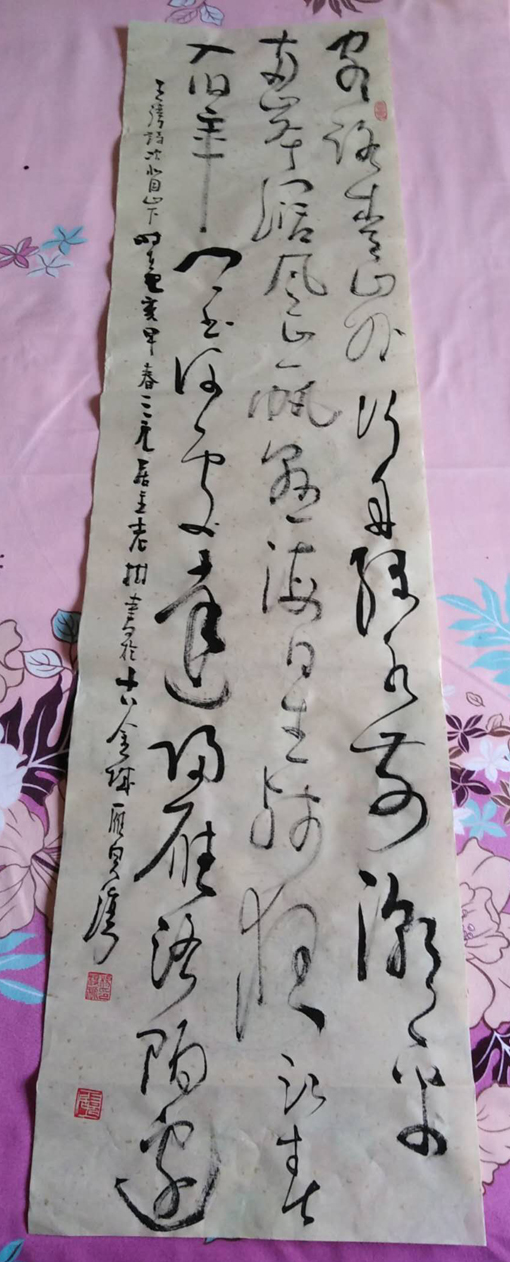 客路青山外行舟绿水前潮平
两岸阔风正一帆悬海日生残夜江春
入旧年乡书何处达归雁洛阳边
王湾诗次北固山下时在己亥早春三元居主书於金城雁儿湾